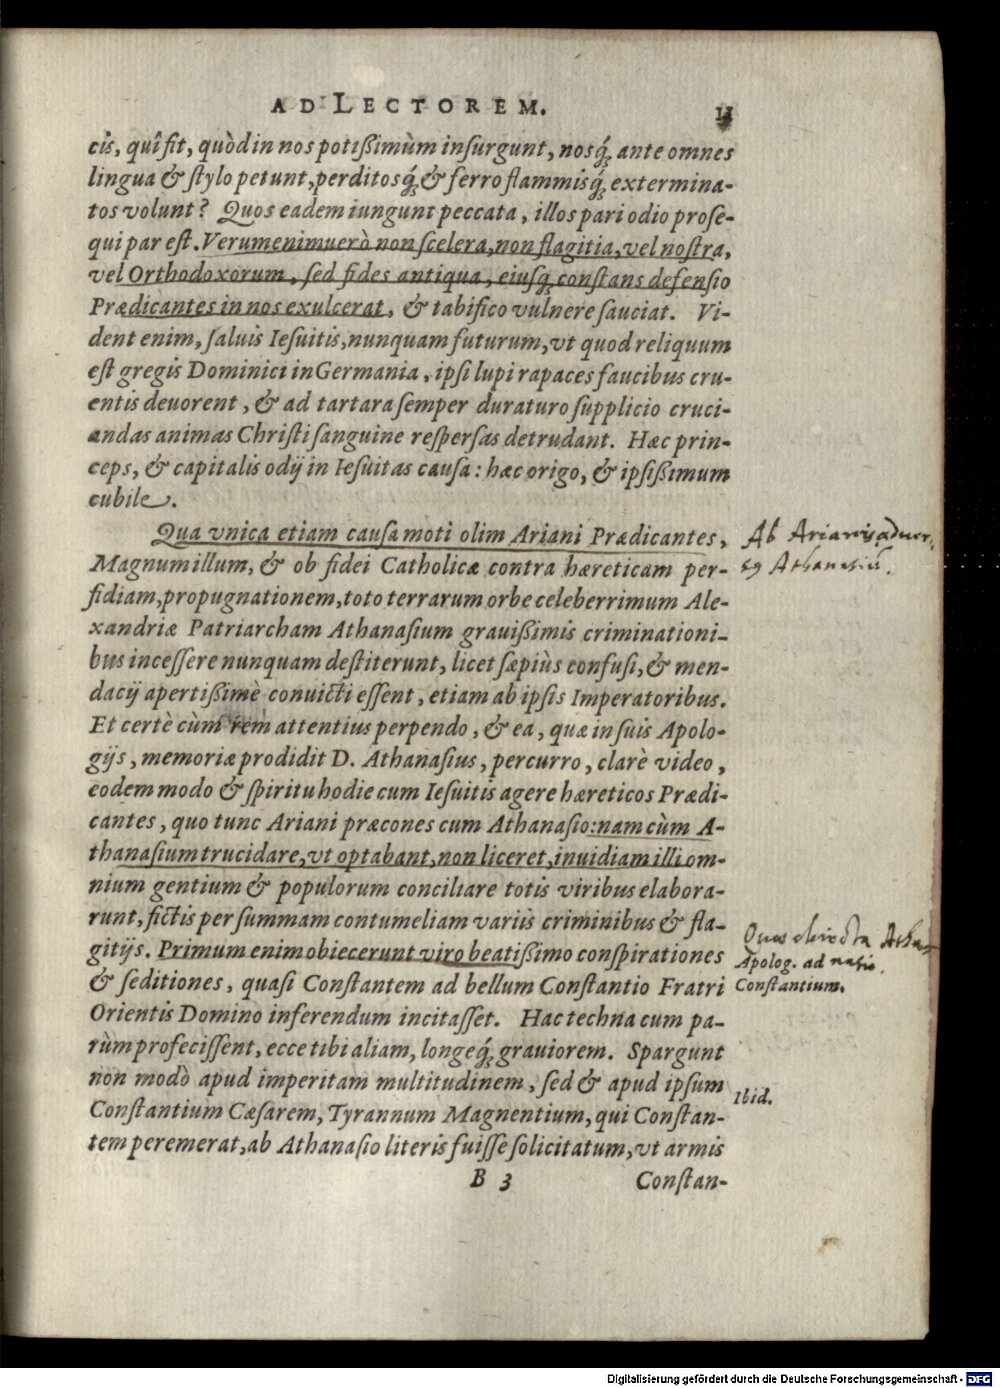 AD LECTOREM. 11
cis, quî fit, quòd in nos potißimùm insurgunt, nosq́; ante omnes
lingua & stylo petunt, perditosq́; & ferro flammisq́; extermina-
tos volunt? Quos eadem iungunt peccata, illos pari odio prose-
qui par est. Verumenimuerò non scelera, non flagitia, vel nostra,
vel Orthodoxorum, sed fides antiqua, eiusq́; constans defensio
Prædicantes in nos exulcerat, & tabifico vulnere sauciat. Vi-
dent enim, saluis Iesuitis, nunquam futurum, vt quod reliquum
est gregis Dominici in Germania, ipsi lupi rapaces faucibus cru-
entis deuorent, & ad tartara semper duraturo supplicio cruci-
andas animas Christi sanguine respersas detrudant. Hæc prin-
ceps, & capitalis odij in Iesuitas causa: hæc origo, & ipsißimum
cubile.
Qua vnica etiam causa moti olim Ariani Prædicantes,
Magnum illum, & ob fidei Catholicæ contra hæreticam per-
fidiam, propugnationem, toto terrarum orbe celeberrimum Ale-
xandriæ Patriarcham Athanasium grauißimis criminationi-
bus incessere nunquam destiterunt, licet sæpiùs confusi, & men-
dacij apertißimè conuicti essent, etiam ab ipsis Imperatoribus.
Et certè cùm rem attentius perpendo, & ea, quæ in suis Apolo-
gijs, memoriæ prodidit D. Athanasius, percurro, clarè video,
eodem modo & spiritu hodie cum Iesuitis agere hæreticos Prædi-
cantes, quo tunc Ariani præcones cum Athanasio: nam cùm A-
thanasium trucidare, vt optabant, non liceret, inuidiam illi om-
nium gentium & populorum conciliare totis viribus elabora-
runt, fictis per summam contumeliam variis criminibus & fla-
gitijs. Primum enim obiecerunt viro beatißimo conspirationes
& seditiones, quasi Constantem ad bellum Constantio Fratri
Orientis Domino inferendum incitasset. Hac techna cum pa-
rùm profecissent, ecce tibi aliam, longeq́; grauiorem. Spargunt
non modò apud imperitam multitudinem, sed & apud ipsum
Constantium Cæsarem, Tyrannum Magnentium, qui Constan-
tem peremerat, ab Athanasio literis fuisse solicitatum, vt armis
B 3 Constan-
Ab Arianis aduer-
Athanasiū.
obiecta Atha-
nasio.
Apolog. ad
Constantium.
Ibid.
Digitalisierung gefördert durch die Deutsche Forschungsgemeinschaft - DFG